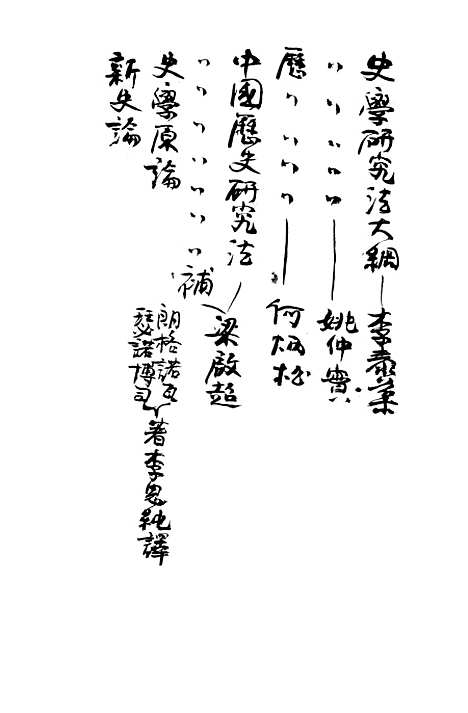 史學研究法大綱——李泰棻
〃〃〃〃〃——姚仲實
歷〃〃〃〃——何炳松
中國歷史研究法
〃〃〃〃〃〃〃補 梁啟超
史學原論 朗格諾瓦 瑟諾博司 著 李思純譯
新史論